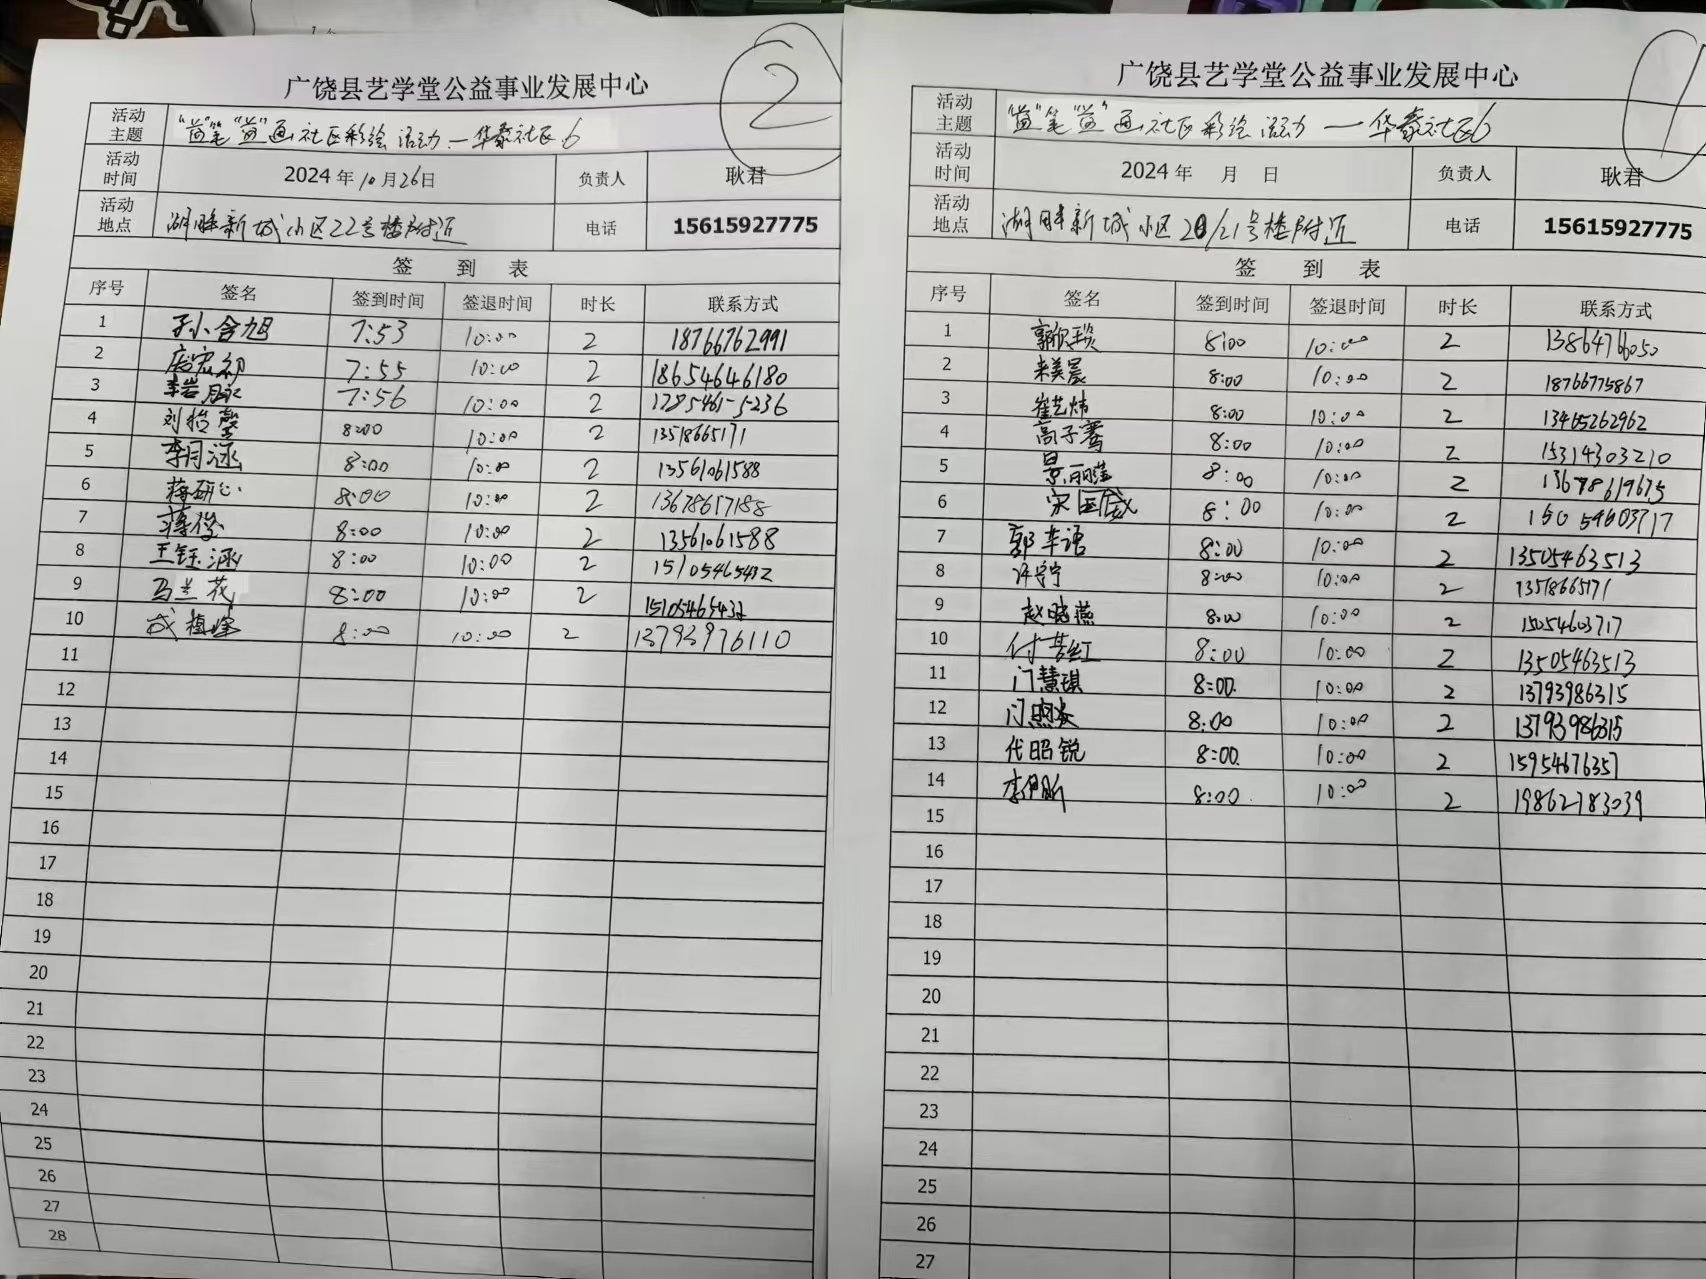 ②
广饶县艺学堂公益事业发展中心
活动主题 “益”笔“益”画社区彩绘活动—华泰社区6
活动时间 2024年10月26日 负责人 耿君
活动地点 湖畔新城小区22号楼附近 电话 15615927775
签 到 表
序号 签名 签到时间 签退时间 时长 联系方式
1 孙小含旭 7:53 10:00 2 18766762991
2 7:55 10:00 2 18654646180
3 7:56 10:00 2
4 刘怡馨 8:00 10:00 2 13518665171
5 李月涵 8:00 10:00 2 13561061588
6 蒋研心 8:00 10:00 2 13678657188
7 蒋俊 8:00 10:00 2 13561061588
8 王钰涵 8:00 10:00 2 15105465432
9 马兰花 8:00 10:00 2 15105465432
10 成植峰 8:00 10:00 2 13793976110
11
12
13
14
15
16
17
18
19
20
21
22
23
24
25
26
27
28
1
广饶县艺学堂公益事业发展中心
活动主题 “益”笔“益”画社区彩绘活动—华泰社区6
活动时间 2024年 月 日 负责人 耿君
活动地点 湖畔新城小区20/21号楼附近 电话 15615927775
签 到 表
序号 签名 签到时间 签退时间 时长 联系方式
1 郭欣琰 8:00 10:00 2 13864766050
2 来美晨 8:00 10:00 2 18766775867
3 崔艺炜 8:00 10:00 2 13465262962
4 高子骞 8:00 10:00 2 15314303210
5 景丽莹 8:00 10:00 2 13678619675
6 宋国威 8:00 10:00 2 15054603717
7 郭芊语 8:00 10:00 2 13505463513
8 许宁宁 8:00 10:00 2 13518665171
9 赵晓燕 8:00 10:00 2 15054603717
10 付苦红 8:00 10:00 2 13505463513
11 门慧琪 8:00 10:00 2 13793986315
12 8:00 10:00 2 13793986315
13 代昭锐 8:00 10:00 2 15954676357
14 李伊昕 8:00 10:00 2 19862783039
15
16
17
18
19
20
21
22
23
24
25
26
27